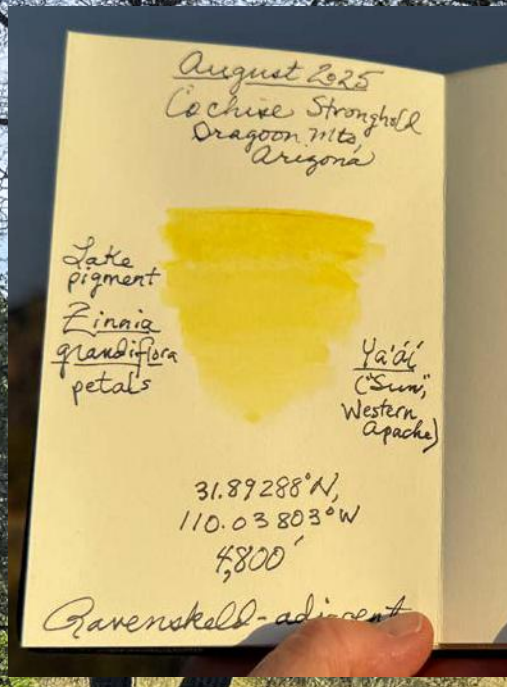 August 2025
Cochise Stronghold
Dragoon Mts,
Arizona
Lake
pigment
Zinnia
grandiflora
petals
Ya'áí
("Sun",
Western
Apache)
31.89288°N,
110.03803°W
4,800'
Ravenskeld-adjacent